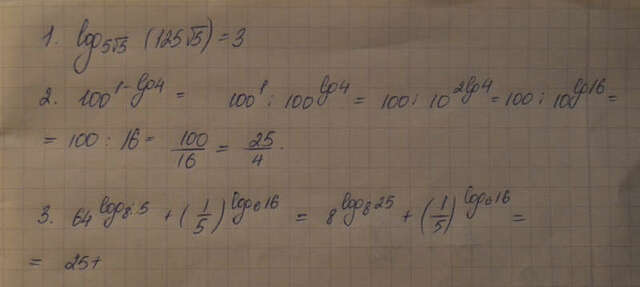 1. log₅√₅ (125√5) = 3
2. 100^(1-lg4) = 100¹ : 100^(lg4) = 100 : 10^(2lg4) = 100 : 10^(lg16) =
= 100 : 16 = 100/16 = 25/4.
3. 64^(log₈5) + (1/5)^(log₆16) = 8^(log₈25) + (1/5)^(log₆16) =
= 25+